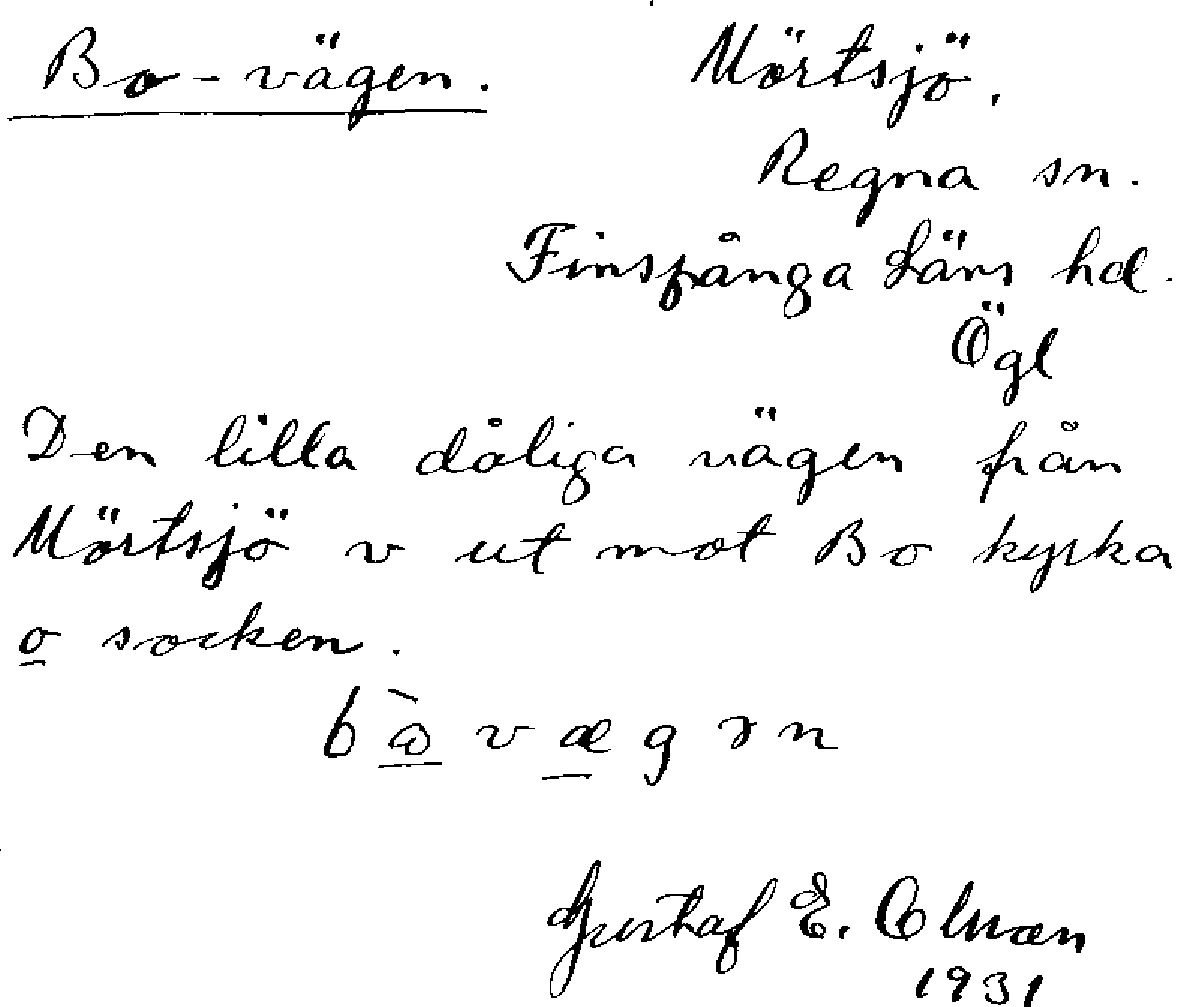 Bo-vägen. Mörtsjö.
Regna sn.
Finspånga läns hd.
Ögl
Den lilla dåliga vägen från
Mörtsjö v ut mot Bo kyrka
o socken.
Gustaf E.
1931